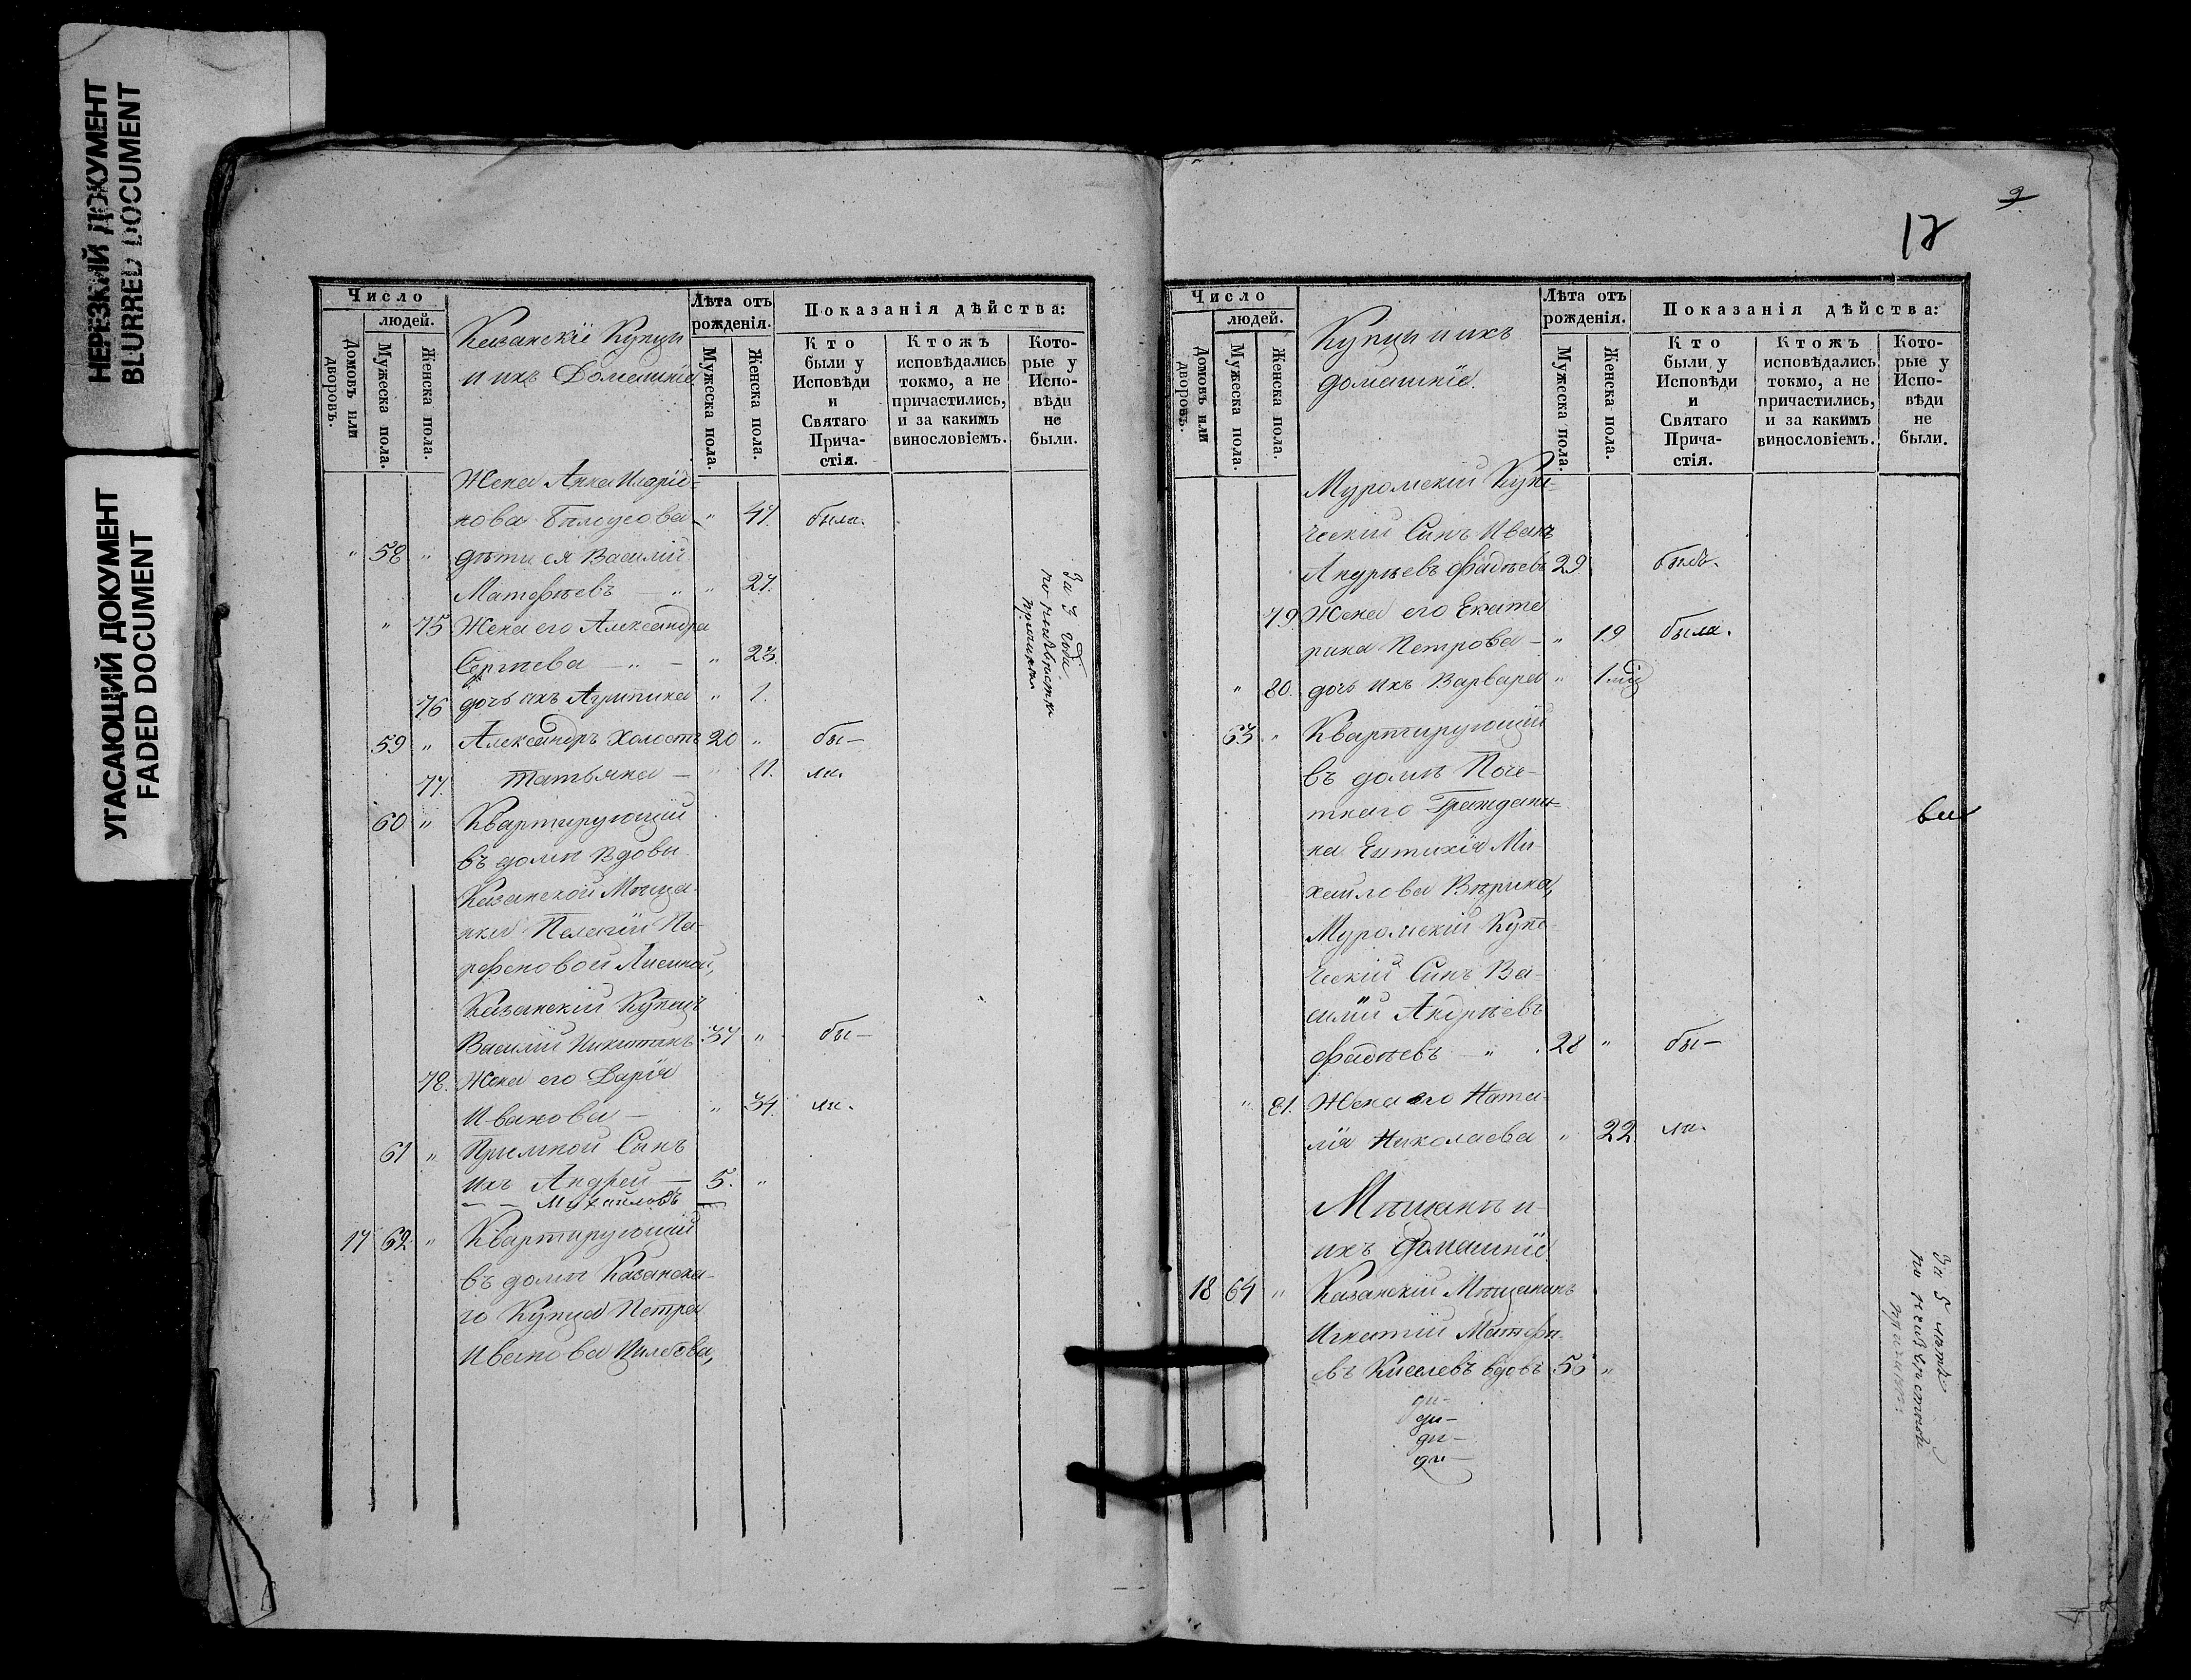 НЕРЕЗКИЙ ДОКУМЕНТ
BLURRED DOCUMENT
УГАСАЮЩИЙ ДОКУМЕНТ
FADED DOCUMENT
Число
людей.
Домовъ или дворовъ.
Мужеска пола.
Женска пола.
Казанскіе Купцы
и ихъ Домашніе
Лѣта отъ рожденія.
Мужеска пола.
Женска пола.
Показанія дѣйства:
Кто были у Исповѣди и Святаго Прича-стія.
Ктожъ исповѣдались токмо, а не причастились, и за какимъ винословіемъ.
Кото-рые у Испо-вѣди не были.
Жена Анна Иларіо-
нова " 47. была.
" 58 " дѣти ея Василій
Матфѣевъ — " " 27.
" 75 Жена его Александра
Сергѣева — " — " 23.
76 дочь ихъ Агрипина " 1.
59 " Александръ Холостъ 20 " бы—
77. Татьяна — " 11. ли.
60 " Квартирующій
въ домѣ Вдовы
Казанской Мѣща-
нки Пелагіи Па-
рфеновой
Казанскій Купецъ
Василій Никитинъ 37 " бы—
78. Жена его Дарія
Иванова — " 34. ли.
61 " Пріемной Сынъ
ихъ Андрей — 5. "
— — Михайловъ —
17 62 " Квартирующій
въ домѣ Казанска-
го Купца Петра
Иванова
За 7 годъ
по неизвѣстн
причинѣ
9
12
Число
людей.
Домовъ или дворовъ.
Мужеска пола.
Женска пола.
Купцы и ихъ
домашніе.
Лѣта отъ рожденія.
Мужеска пола.
Женска пола.
Показанія дѣйства:
Кто были у Исповѣди и Святаго Прича-стія.
Ктожъ исповѣдались токмо, а не причастились, и за какимъ винословіемъ.
Кото-рые у Испо-вѣди не были.
Муромскій Купе-
ческій Сынъ Иванъ
Андрѣевъ Фадѣевъ 29. былъ.
79 Жена его Екате
рина Петрова — " 19 была.
" 80. дочь ихъ Варвара " 1
63 " Квартирующій
въ домѣ Поче-
тнаго Граждани-
на Евтихія Ми-
хаилова
Муромскій Купе-
ческій Сынъ Ва-
силій Андрѣевъ
Фадѣевъ — " 28 " бы—
" 81. Жена его Ната-
лія Николаева " 22. ли.
Мѣщанѣ и
ихъ домашніе
18 64 " Казанскій Мѣщанинъ
Игнатій Матфѣ-
евъ Киселевъ вдовъ 55 "
ди—
ди—
ди—
ди—
За 5 лѣтъ
по неизвѣстной
причинѣ